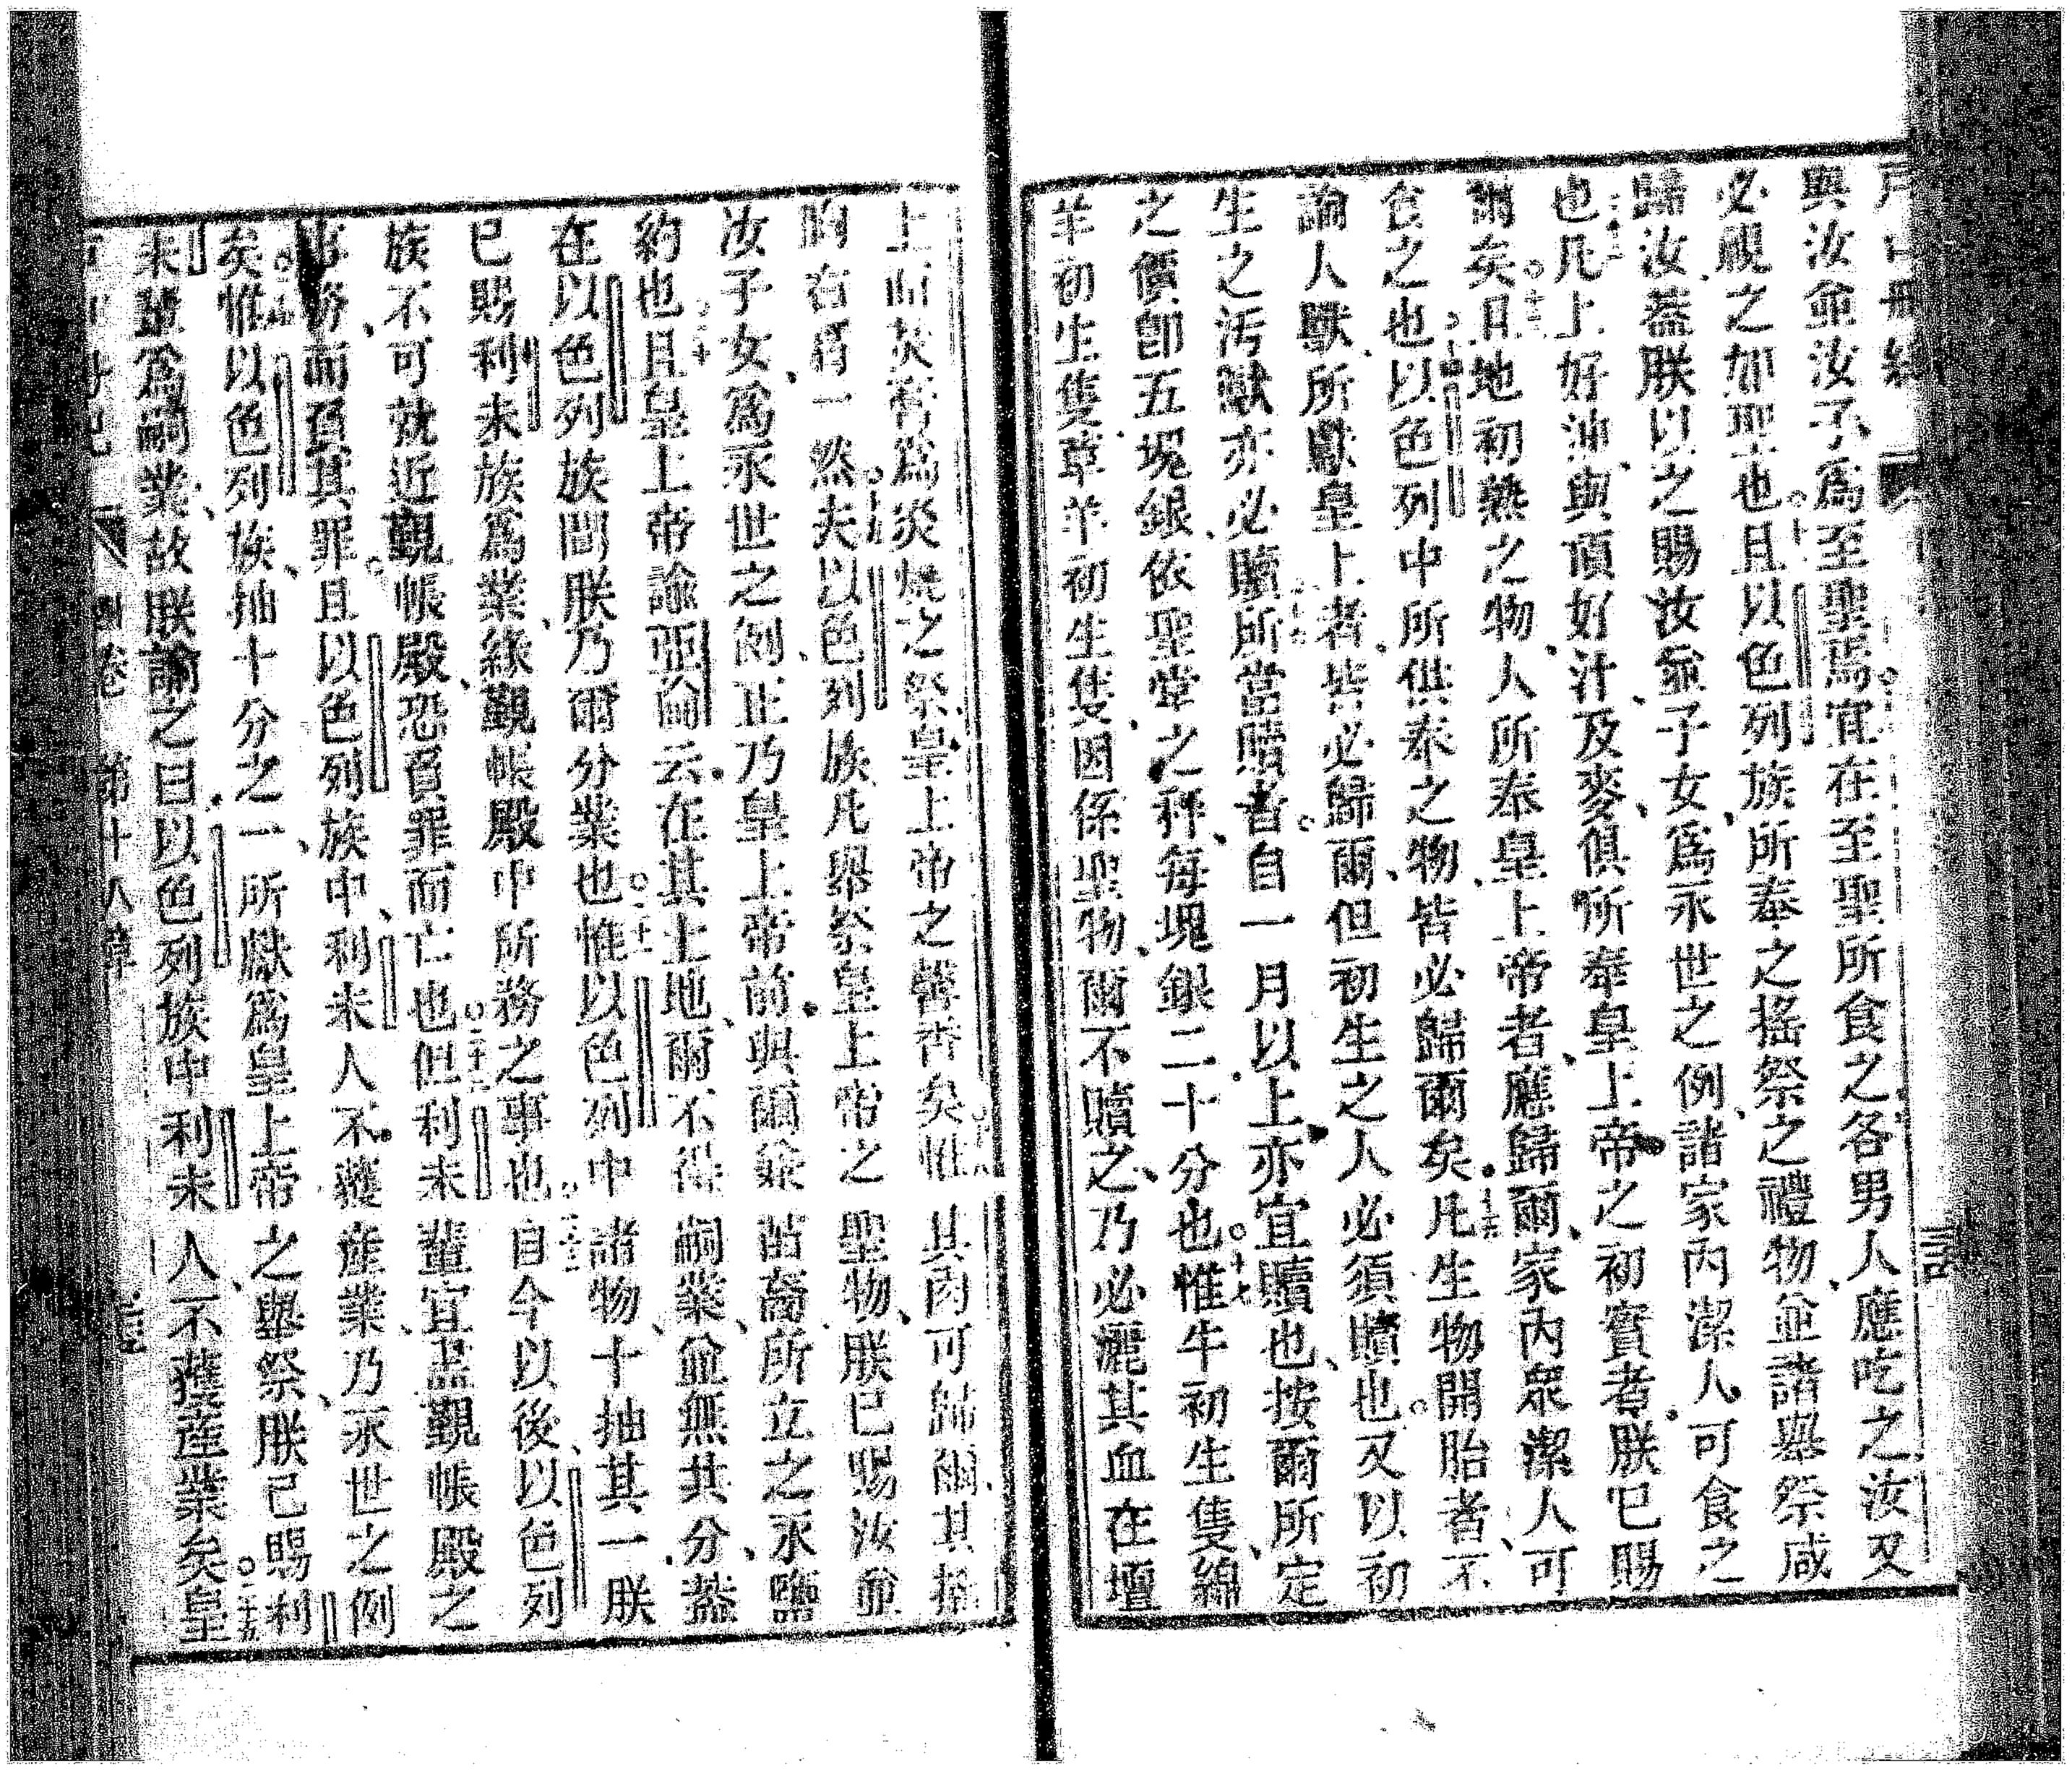 與汝並汝子爲至聖焉宜在至聖所食之各男人應吃之汝又
必視之如聖也○十一且以色列族所奉之搖祭之禮物並諸舉祭咸
歸汝蓋朕以之賜汝並子女爲永世之例諸家內潔人可食之
也○十二凡上好油與頂好汁及麥俱所奉皇上帝之初實者朕已賜
爾矣○十三且地初熟之物人所奉皇上帝者應歸爾家內眾潔人可
食之也○十四以色列中所供奉之物皆必歸爾矣○十五凡生物開胎者不
論人獸所獻皇上者皆必歸爾但初生之人必須贖也又以初
生之汚獸亦必贖○十六所當贖者自一月以上亦宜贖也按爾所定
之價卽五塊銀依聖堂之秤每塊銀二十分也○十七惟牛初生隻綿
羊初生隻草羊初生隻因係聖物爾不贖之乃必灑其血在壇
上而炎膏爲炎燒之祭皇上帝之馨香矣○十八惟其肉可歸爾其搖
胸右肩一然○十九夫以色列族凡舉祭皇上帝之聖物朕已賜汝並
汝子女爲永世之例正乃皇上帝前與爾並苗裔所立之永鹽
約也○二十且皇上帝諭亞倫云在其土地爾不得嗣業並無共分蓋
在以色列族間朕乃爾分業也○二十一惟以色列中諸物十抽其一朕
已賜利未族爲業緣覲帳殿中所務之事也○二十二自今以後以色列
族不可就近覲帳殿恐負罪而亡也○二十三但利未輩宜盡覲帳殿之
事務而負其罪且以色列族中利未人不獲產業乃永世之例
矣○二十四惟以色列族抽十分之一所獻爲皇上帝之舉祭朕已賜利
未輩爲嗣業故朕諭之曰以色列族中利未人不獲產業矣○二十五皇
四卷 第十八章